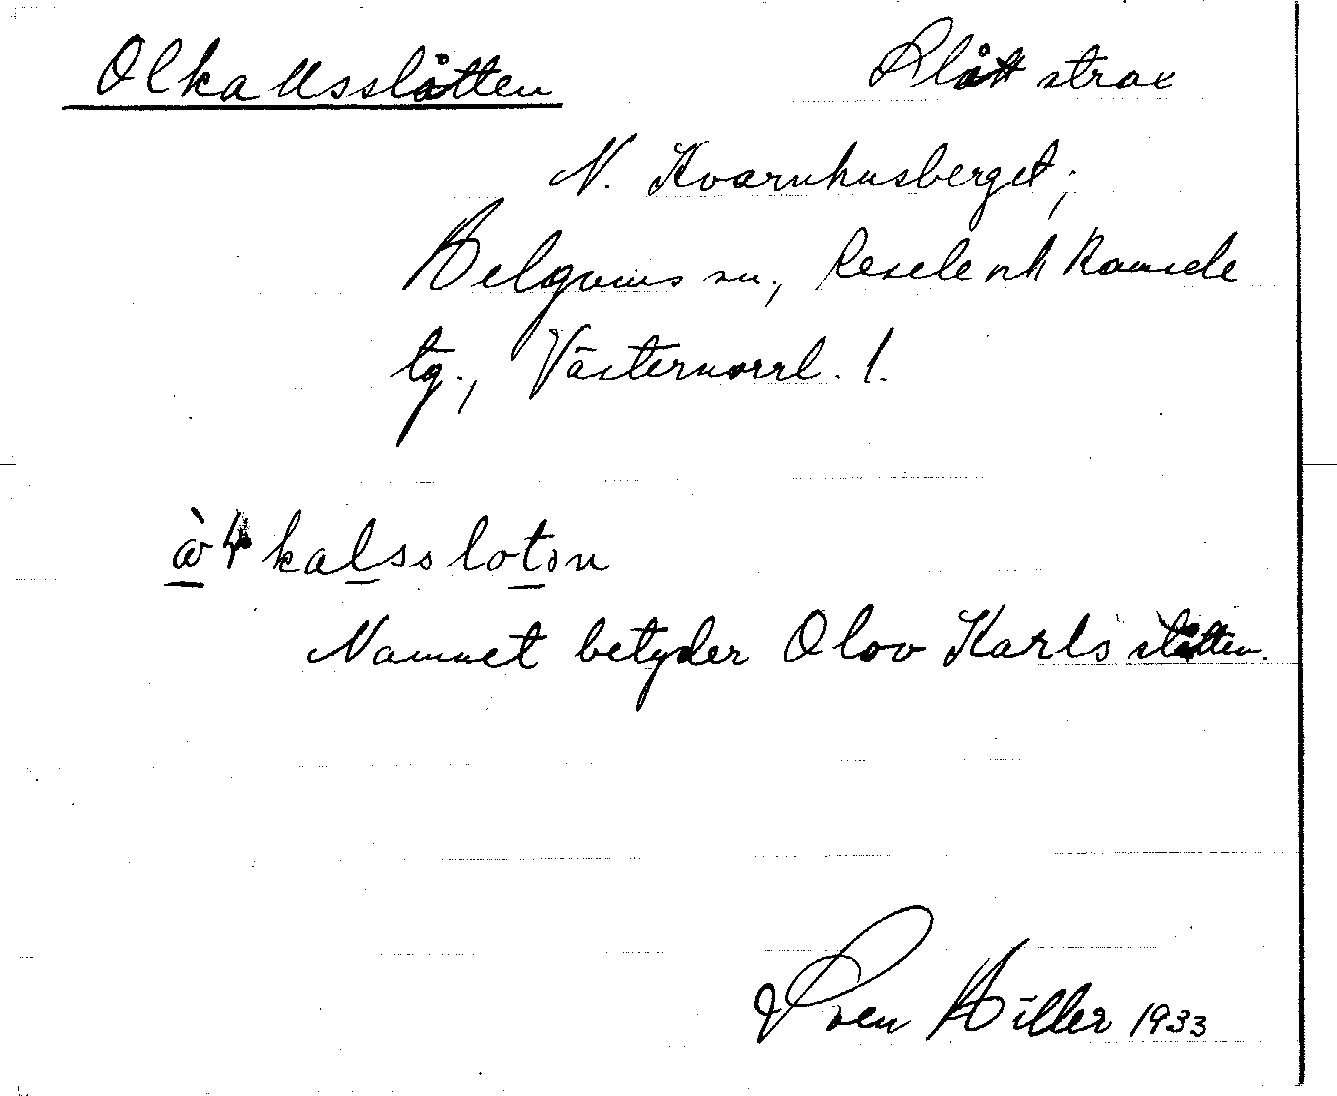 Olkallsslåtten Slått strax
N. Kvarnhusberget;
Helgums sn., Resele och Ramsele
tg., Västernorrl. l.
kalssloton
Namnet betyder Olov Karls slåtten.
Sven Hiller 1933